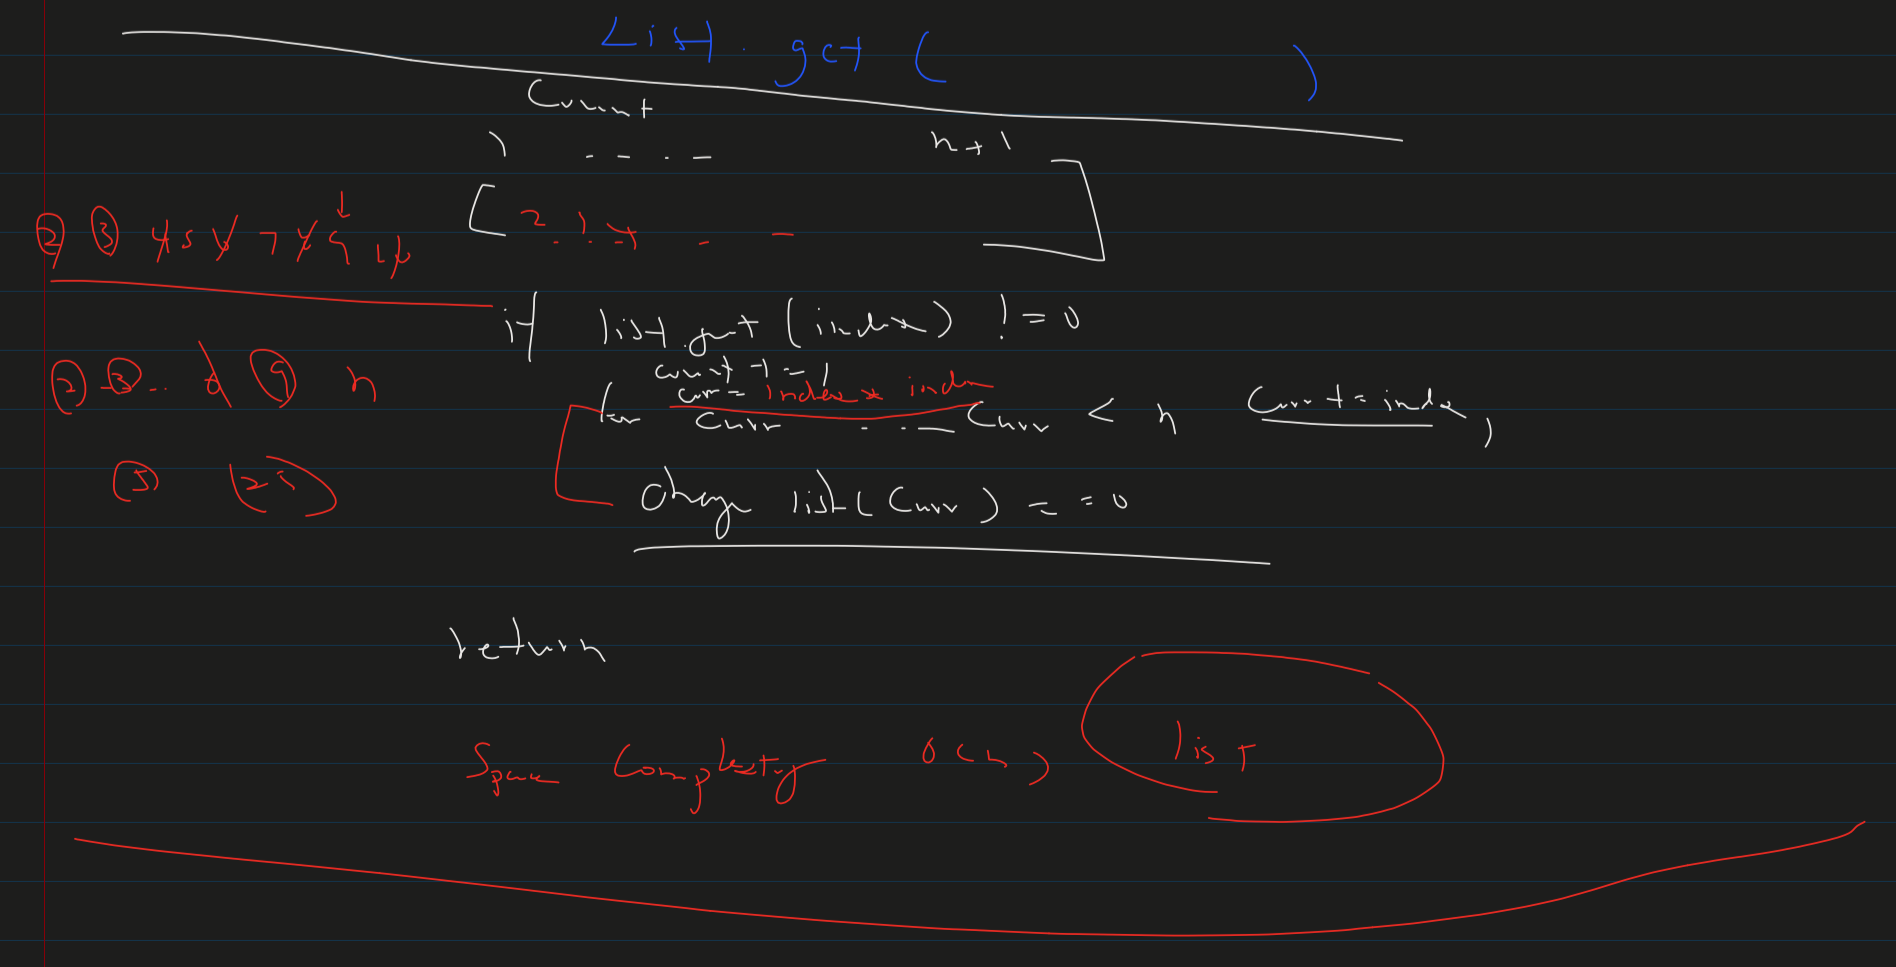 List . get ( )
Count
1 - - . - n+1
[ 2 . ! . 4 - - ]
2 3 4 5 6 7 8 9 10
if list.get (index) != 0
count += 1
curr = index * index
2 3 .. 9 n
for curr .. - curr < n curr += index,
5 25
change list( curr ) = = 0
return
Space Complexity O(n) list